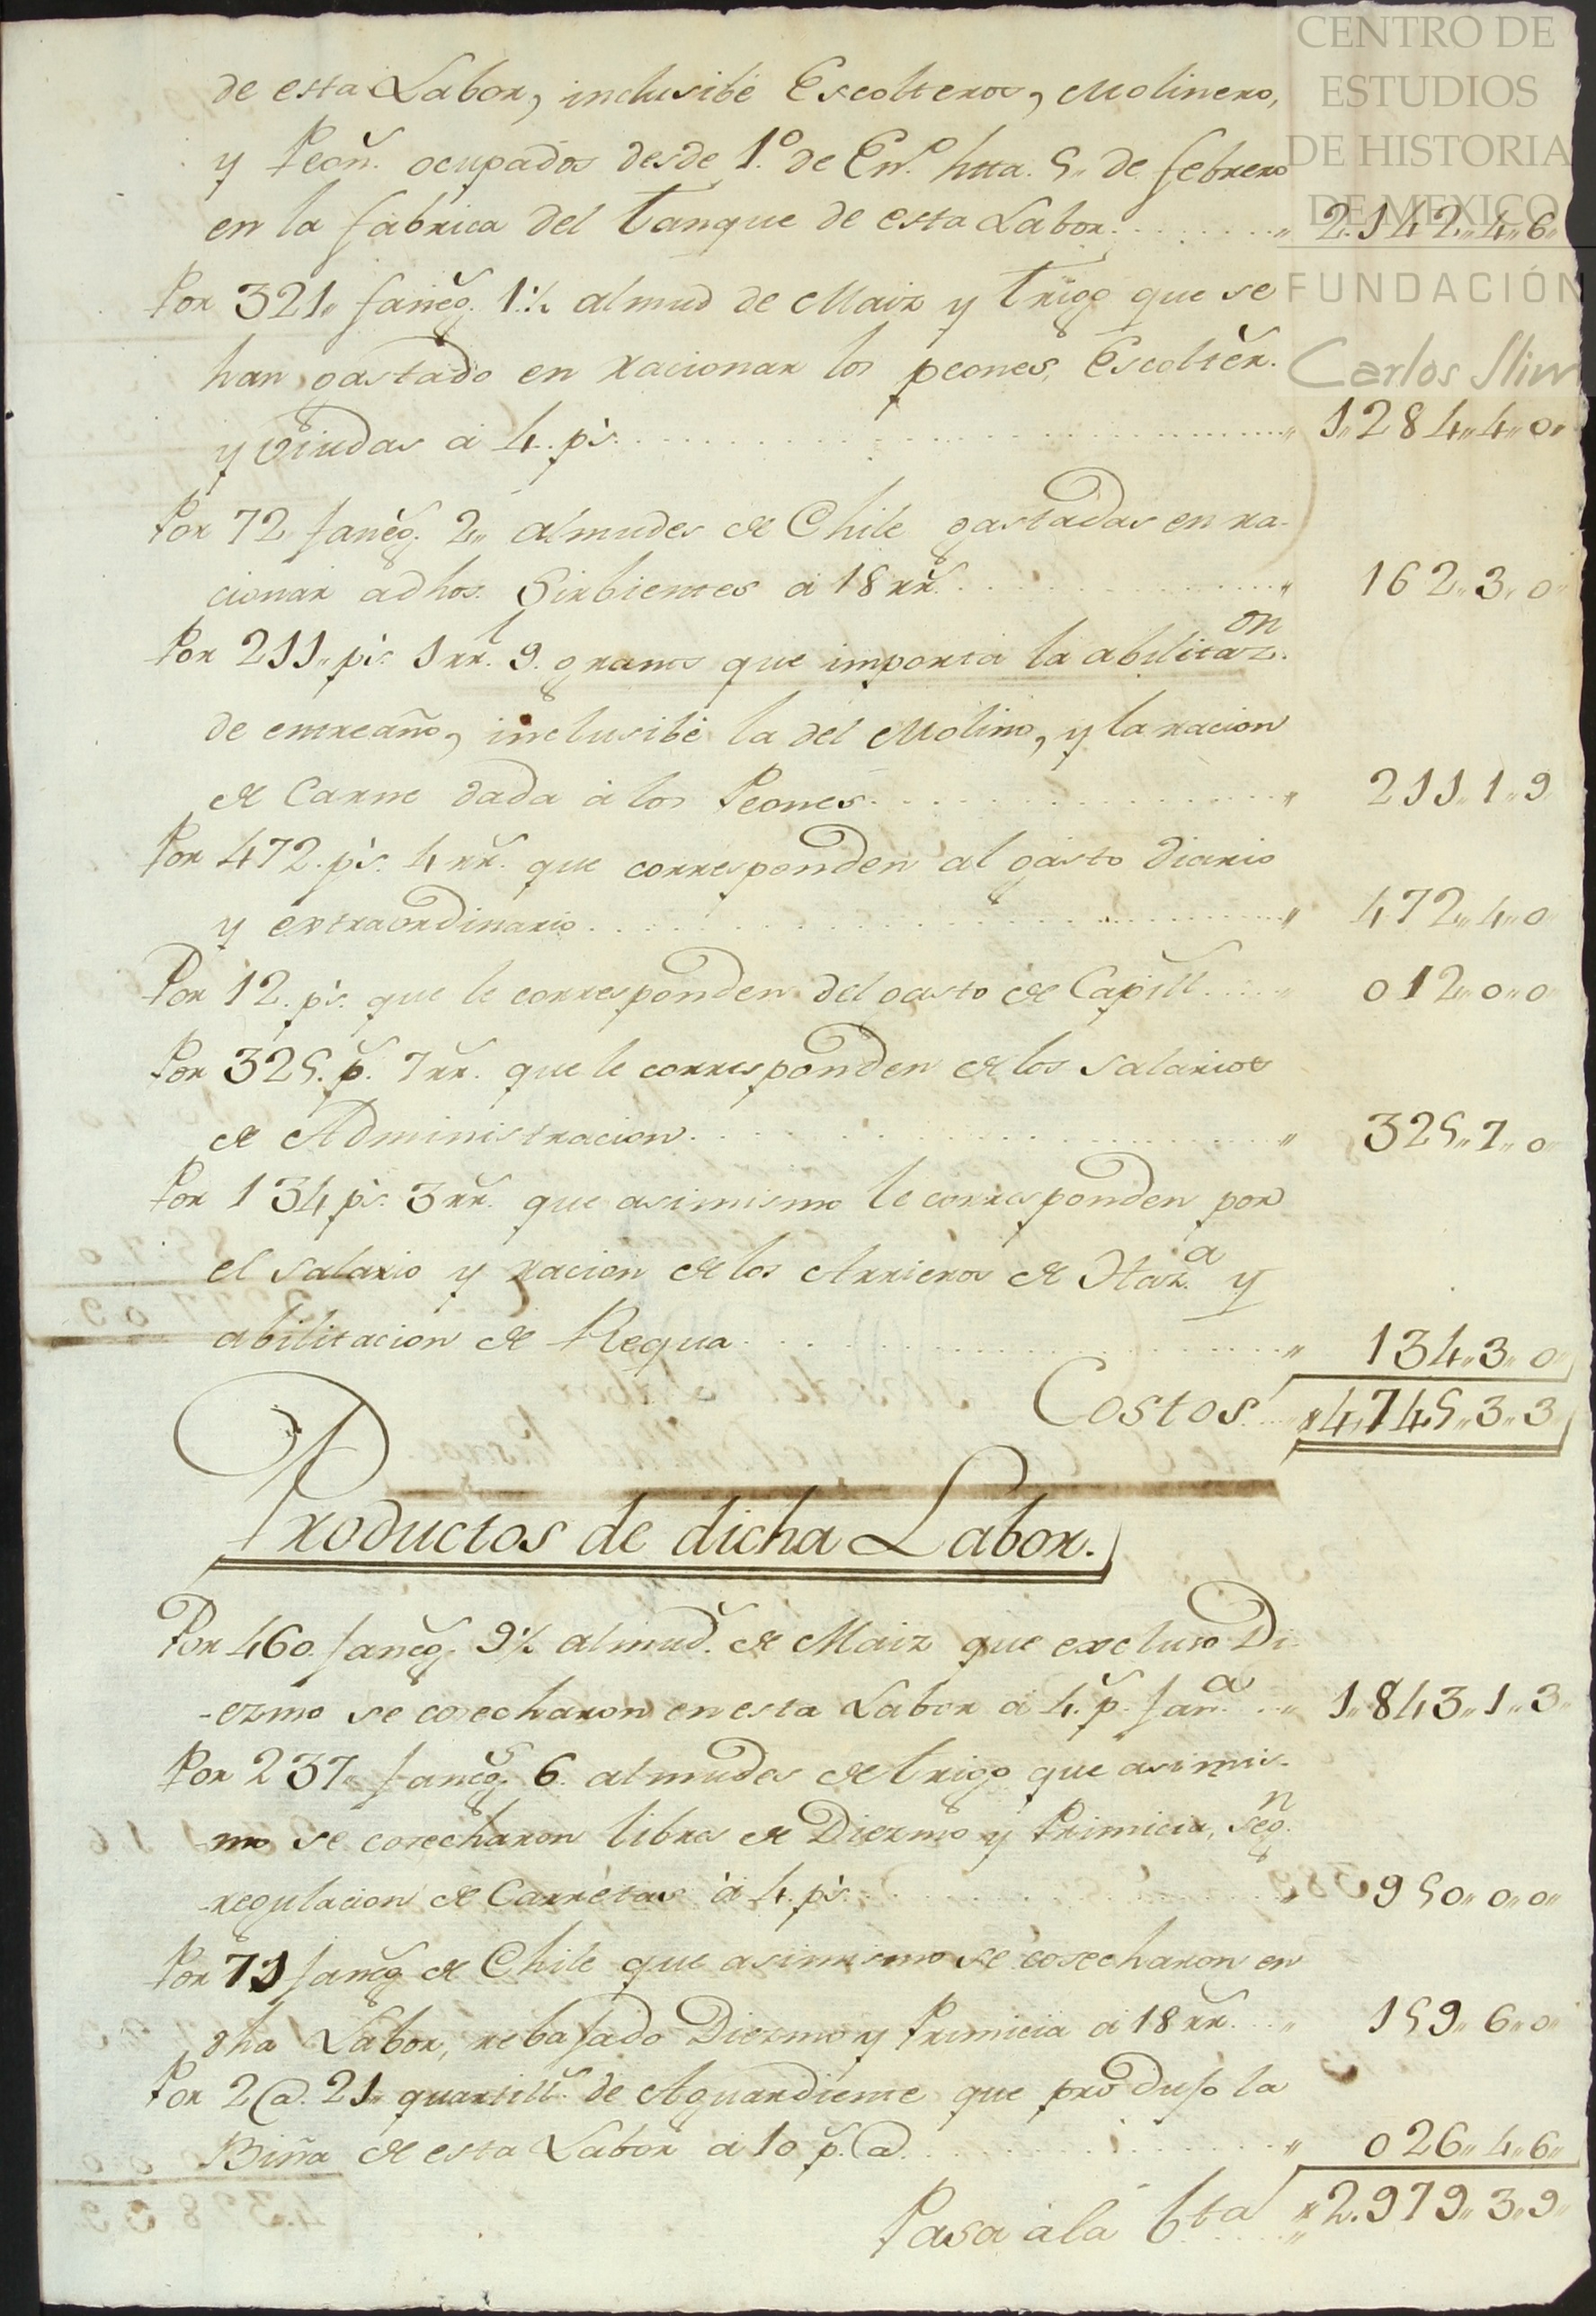 CENTRO DE
ESTUDIOS
DE HISTORIA
DE MEXICO
FUNDACIÓN
Carlos Slim
de esta Labor, inclusibé Escolteros, Molinero,
y Peon.s ocupados desde 1.º de En.º htta. 5,, de febrero
en la fabrica del tanque de esta Labor........,, 2.142,,4,,6,,
Por 321,, faneg.s 1½ almud de Maiz y trigo que se
han gastado en racionar los peones, Escolter.s
y Viudas á 4. p.s ........,, 1,,284,,4,,0,,
Por 72 faneg.s 2,, almudes de Chile gastadas en ra-
cionar adhos. Sirbientes á 18 rr.s ........,, 162,,3,,0,,
Por 211,, p.s 1 rr.l 9. granos que importa la abilitaz.on
de entreaño, inclusibé la del Molino, y la racion
de Carne dada á los Peones ........,, 211,,1,,9
Por 472. p.s 4 rr.s que corresponden al gasto diario
y extraordinario ........,, 472,,4,,0
Por 12. p.s que le corresponden del gasto de Capill.s ....,, 012,,0,,0
Por 325. p.s 7 rr.s que le corresponden de los Salarios
de Administracion ........,, 325,,7,,0
Por 134 p.s 3 rr.s que asimismo le corresponden por
el Salario y racion de los Arrieros de Haz.a y
abilitacion de Requa ........,, 134,,3,,0
Costos....,, 4,,745,,3,,3
Productos de dicha Labor.
Por 460. faneg.s 9½ almud.s de Maiz que excluso Di-
-ezmo se cosecharon en esta Labor á 4. p.s fan.a ..,, 1,,843,,1,,3
Por 237,, faneg.s 6. almudes de trigo que asimis-
-mo se cosecharon libres de Diezmo y Primicia, seg.n
regulacion de Carretas á 4. p.s ........,, 950,,0,,0,,
Por 71 faneg.s de Chile que asimismo se cosecharon en
dha Labor, rebajado Diezmo y Primicia á 18 rr.s ..,, 159,,6,,0
Por 2 @. 21,, quartill.s de Aguardiente que produjo la
Biña de esta Labor á 10 p.s @ ........,, 026,,4,,6,,
Pasa á la bta ....,, 2.979,,3,,9,,